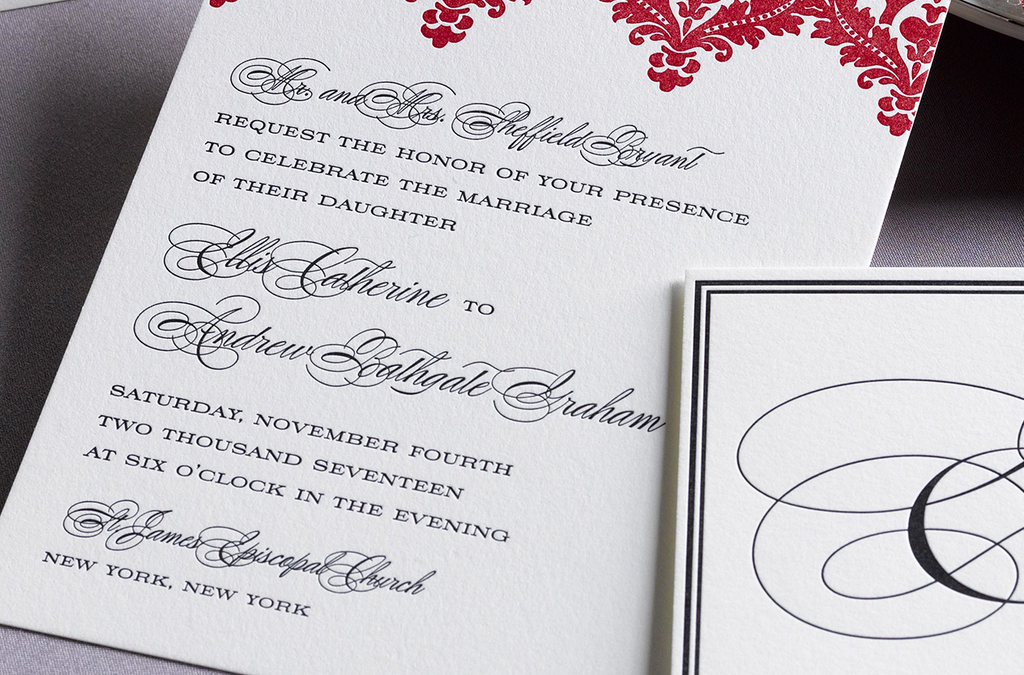 Mr. and Mrs. Sheffield Bryant
REQUEST THE HONOR OF YOUR PRESENCE
TO CELEBRATE THE MARRIAGE
OF THEIR DAUGHTER
Ellis Catherine TO
Andrew Bathgate Graham
SATURDAY, NOVEMBER FOURTH
TWO THOUSAND SEVENTEEN
AT SIX O'CLOCK IN THE EVENING
St. James Episcopal Church
NEW YORK, NEW YORK